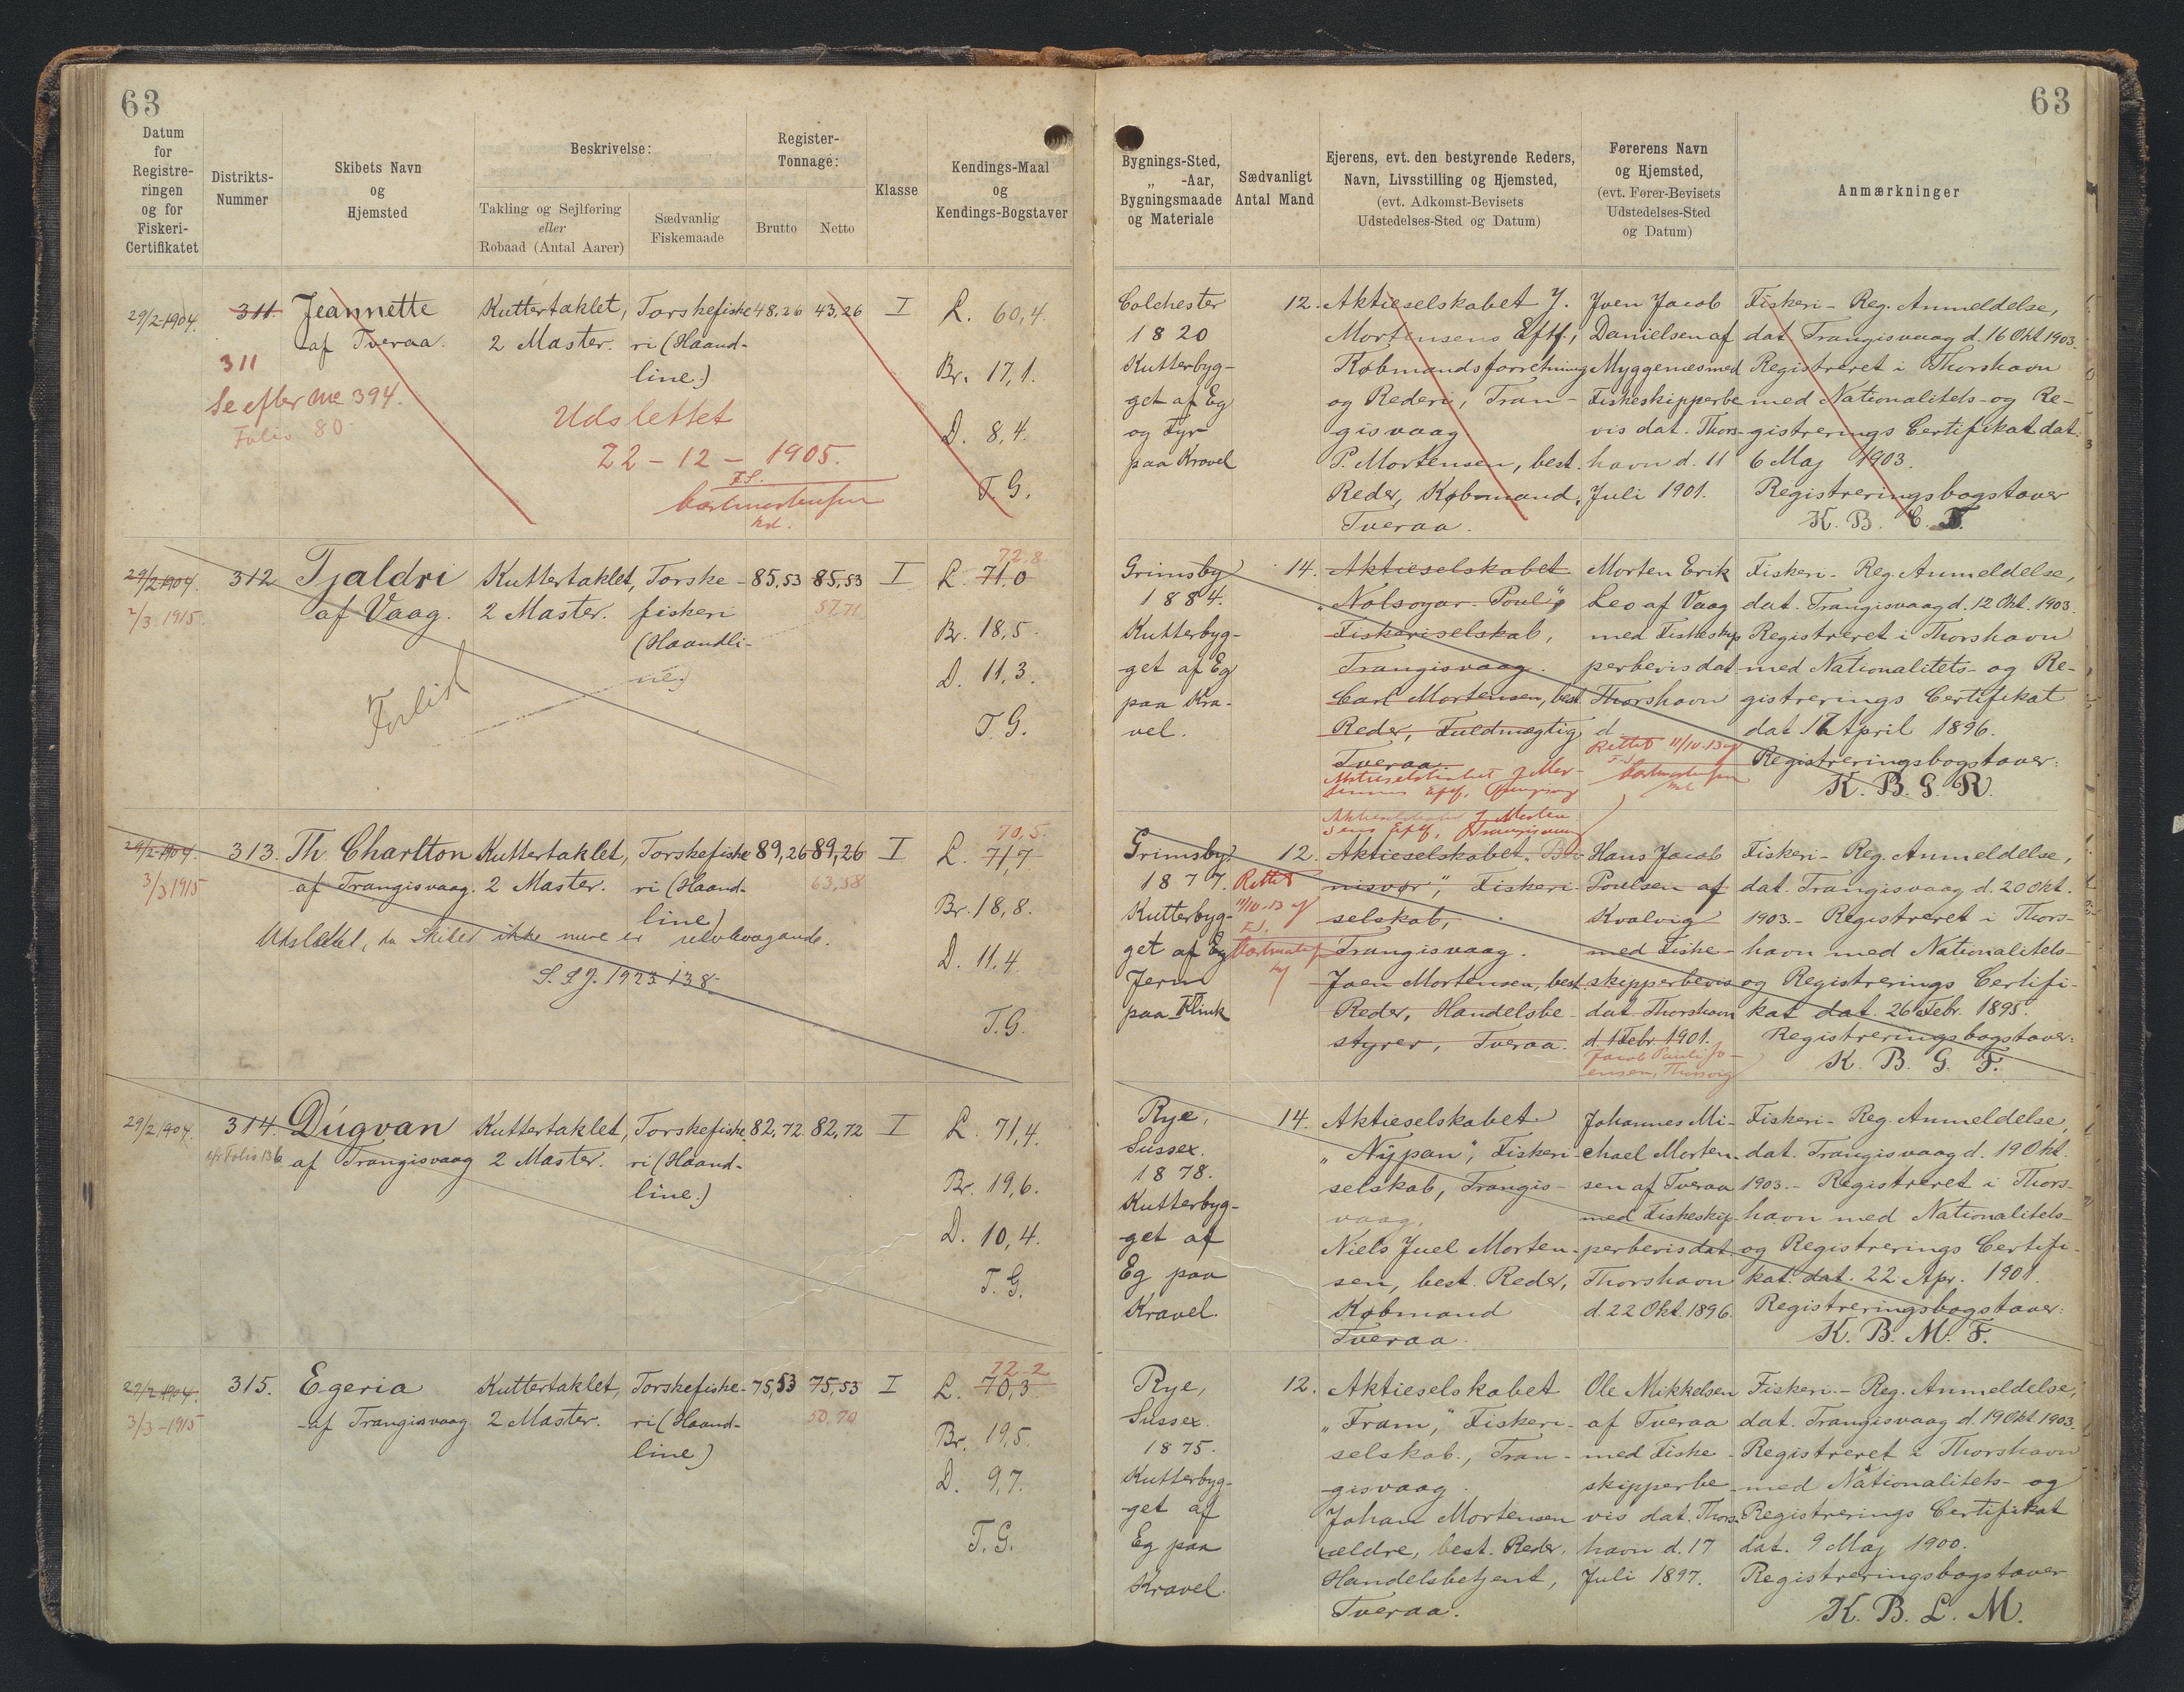 63
63
Datum
for
Registre-
ringen
og for
Fiskeri-
Certifikatet
Distrikts-
Nummer
Skibets Navn
og
Hjemsted
Beskrivelse:
Takling og Sejlføring
eller
Robaad (Antal Aarer)
Sædvanlig
Fiskemaade
Register-
Tonnage:
Brutto
Netto
Klasse
Kendings-Maal
og
Kendings-Bogstaver
Bygnings-Sted,
„ -Aar,
Bygningsmaade
og Materiale
Sædvanligt
Antal Mand
Ejerens, evt. den bestyrende Reders,
Navn, Livsstilling og Hjemsted,
(evt. Adkomst-Bevisets
Udstedelses-Sted og Datum)
Førerens Navn
og Hjemsted,
(evt. Fører-Bevisets
Udstedelses-Sted
og Datum)
Anmærkninger
29/2 1904.
311
311
Se efter No 394.
Folio 80
Jeannette
af Tveraa.
Kuttertaklet,
2 Master.
Torskefiske
ri (Haand-
line.)
48,26
43,26
I
L. 60,4.
Br. 17,1.
D. 8,4.
T. G.
Udslettet
22 - 12 - 1905.
Colchester
1820
Kutterbyg-
get af Eg
og Fyr
paa Kravel
12.
Aktieselskabet J.
Mortensens Eftf.,
Købmandsforretning
og Rederi, Tran-
gisvaag
P. Mortensen, best.
Reder, Købmand,
Tveraa.
Joen Jacob
Danielsen af
Myggenæs med
Fiskeskipperbe
vis dat. Thors-
havn d. 11
Juli 1901.
Fiskeri- Reg. Anmeldelse,
dat. Trangisvaag d. 16 Okt. 1903.
Registreret i Thorshavn
med Nationalitets- og Re-
gistrerings Certifikat dat.
6 Maj 1903.
Registreringsbogstaver
K. B. C. F.
29/2 1904.
2/3 1915.
312
Tjaldri
af Vaag.
Forlist
Kuttertaklet,
2 Master.
Torske-
fiskeri
(Haandli-
ne.)
85,53
85,53
57,71
I
72,8
L. 71,0
Br. 18,5.
D. 11,3.
T. G.
Grimsby
1884.
Kutterbyg-
get af Eg
paa Kra-
vel.
14.
Aktieselskabet
„Nolsoyar-Poul",
Fiskeriselskab,
Trangisvaag.
Carl Mortensen, best.
Reder, Fuldmægtig
Tveraa.
Morten Erik
Leo af Vaag
med Fiskeskip
perbevis dat
Thorshavn
d.
Rettet 11/10-13
Fiskeri- Reg. Anmeldelse,
dat. Trangisvaag d. 12 Okt. 1903.
Registreret i Thorshavn
med Nationalitets- og Re-
gistrerings Certifikat
dat 17 April 1896.
Registreringsbogstaver:
K. B. G. R.
29/2 1904.
3/3 1915
313.
Th. Charlton
af Trangisvaag.
Udslettet, da Skibet ikke mere er
S. S. J. 1923 138.
Kuttertaklet,
2 Master.
Torskefiske
ri (Haand-
line)
89,26
89,26
63,58
I
70,5.
L. 71,7
Br. 18,8.
D. 11,4
T.G.
Grimsby
1877.
Kutterbyg-
get af Eg
Jern
paa Klink
12.
Rettet
11/10-13
Aktieselskabet
Fiskeri
selskab,
Trangisvaag.
Joen Mortensen, best.
Reder, Handelsbe-
styrer, Tveraa.
Hans Jacob
Poulsen af
Kvalvig
med Fiske-
skipperbevis
dat Thorshavn
d. 1 Febr. 1901.
Fiskeri- Reg. Anmeldelse,
dat. Trangisvaag d. 20 Okt.
1903.- Registreret i Thors-
havn med Nationalitets-
og Registrerings Certifi-
kat dat. 26 Febr. 1895.
Registreringsbogstaver:
K. B. G. F.
29/2 1904.
Folio 136
314.
Dúgvan
af Trangisvaag
Kuttertaklet,
2 Master.
Torskefiske
ri (Haand-
line.)
82,72
82,72
I
L. 71,4.
Br. 19,6.
D. 10,4.
T. G.
Rye,
Sussex.
1878.
Kutterbyg-
get af
Eg paa
Kravel.
14.
Aktieselskabet
„Nýpan", Fiskeri-
selskab, Trangis-
vaag.
Niels Juel Morten-
sen, best. Reder,
Købmand
Tveraa.
Johannes Mi-
chael Morten-
sen af Tveraa
med Fiskeskip-
perbevis dat.
Thorshavn
d. 22 Okt. 1896.
Fiskeri- Reg. Anmeldelse,
dat. Trangisvaag d. 19 Okt.
1903.- Registreret i Thors-
havn med Nationalitets-
og Registrerings Certifi-
kat. dat. 22 Apr. 1901.
Registreringsbogstaver:
K. B. M. F.
29/2 1904.
3/3-1915
315.
Egeria
af Trangisvaag
Kuttertaklet,
2 Master.
Torskefiske-
ri (Haand-
line)
75,53
75,53
50,70
I
72,2
L. 70,3
Br. 19,5.
D. 9,7.
T. G.
Rye,
Sussex.
1875.
Kutterbyg-
get af
Eg paa
Kravel.
12.
Aktieselskabet
„Fram," Fiskeri-
selskab., Tran-
gisvaag.
Johan Mortensen
ældre, best. Reder,
Handelsbetjent,
Tveraa.
Ole Mikkelsen
af Tveraa
med Fiske-
skipperbe-
vis dat. Thors-
havn d. 17
Juli 1897.
Fiskeri- Reg. Anmeldelse,
dat. Trangisvaag d. 19 Okt. 1903.
Registreret i Thorshavn
med Nationalitets- og
Registrerings Certifikat
dat. 9 Maj 1900.
Registreringsbogstaver
K. B. L. M.